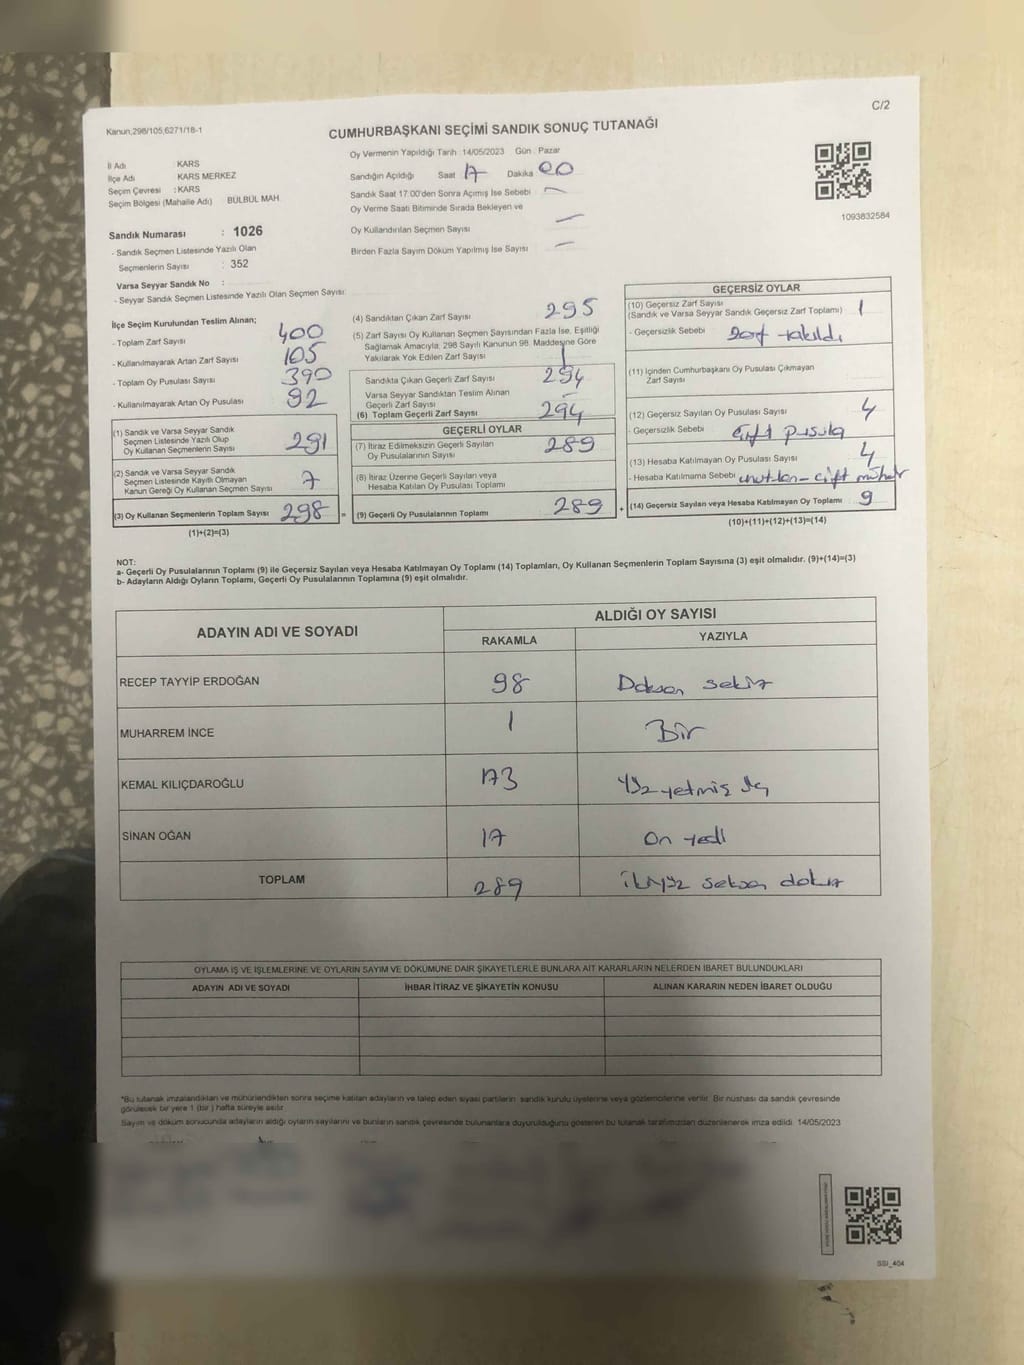 C/2
Kanun,298/105,6271/18-1
CUMHURBAŞKANI SEÇİMİ SANDIK SONUÇ TUTANAĞI
Oy Vermenin Yapıldığı Tarih :14/05/2023 Gün : Pazar
İl Adı : KARS
İlçe Adı : KARS MERKEZ
Seçim Çevresi : KARS
Seçim Bölgesi (Mahalle Adı) BÜLBÜL MAH
Sandığın Açıldığı Saat 17 Dakika 00
Sandık Saat 17:00'den Sonra Açımış İse Sebebi : —
Oy Verme Saati Bitiminde Sırada Bekleyen ve
Oy Kullandırılan Seçmen Sayısı —
Birden Fazla Sayım Döküm Yapılmış İse Sayısı —
1093832584
Sandık Numarası : 1026
- Sandık Seçmen Listesinde Yazılı Olan
Seçmenlerin Sayısı : 352
Varsa Seyyar Sandık No :
- Seyyar Sandık Seçmen Listesinde Yazılı Olan Seçmen Sayısı:
İlçe Seçim Kurulundan Teslim Alınan;
- Toplam Zarf Sayısı 400
- Kullanılmayarak Artan Zarf Sayısı 105
- Toplam Oy Pusulası Sayısı 390
- Kullanılmayarak Artan Oy Pusulası 92
(1) Sandık ve Varsa Seyyar Sandık
Seçmen Listesinde Yazılı Olup
Oy Kullanan Seçmenlerin Sayısı 291
(2) Sandık ve Varsa Seyyar Sandık
Seçmen Listesinde Kayıtlı Olmayan
Kanun Gereği Oy Kullanan Seçmen Sayısı 7
(3) Oy Kullanan Seçmenlerin Toplam Sayısı 298 =
(1)+(2)=(3)
(4) Sandıktan Çıkan Zarf Sayısı 295
(5) Zarf Sayısı Oy Kullanan Seçmen Sayısından Fazla İse, Eşitliği
Sağlamak Amacıyla, 298 Sayılı Kanunun 98. Maddesine Göre
Yakılarak Yok Edilen Zarf Sayısı 1
Sandıkta Çıkan Geçerli Zarf Sayısı 294
Varsa Seyyar Sandıktan Teslim Alınan
Geçerli Zarf Sayısı
(6) Toplam Geçerli Zarf Sayısı 294
GEÇERLİ OYLAR
(7) İtiraz Edilmeksizin Geçerli Sayılan
Oy Pusulalarının Sayısı 289
(8) İtiraz Üzerine Geçerli Sayılan veya
Hesaba Katılan Oy Pusulası Toplamı
(9) Geçerli Oy Pusulalarının Toplamı 289 +
GEÇERSİZ OYLAR
(10) Geçersiz Zarf Sayısı
(Sandık ve Varsa Seyyar Sandık Geçersiz Zarf Toplamı) 1
- Geçersizlik Sebebi zarf yakıldı
(11) İçinden Cumhurbaşkanı Oy Pusulası Çıkmayan
Zarf Sayısı
(12) Geçersiz Sayılan Oy Pusulası Sayısı 4
- Geçersizlik Sebebi çift pusula
(13) Hesaba Katılmayan Oy Pusulası Sayısı 4
- Hesaba Katılmama Sebebi unutulan - çift mühür
(14) Geçersiz Sayılan veya Hesaba Katılmayan Oy Toplamı 9
(10)+(11)+(12)+(13)=(14)
NOT:
a- Geçerli Oy Pusulalarının Toplamı (9) ile Geçersiz Sayılan veya Hesaba Katılmayan Oy Toplamı (14) Toplamları, Oy Kullanan Seçmenlerin Toplam Sayısına (3) eşit olmalıdır. (9)+(14)=(3)
b- Adayların Aldığı Oyların Toplamı, Geçerli Oy Pusulalarının Toplamına (9) eşit olmalıdır.
ADAYIN ADI VE SOYADI ALDIĞI OY SAYISI
RAKAMLA YAZIYLA
RECEP TAYYİP ERDOĞAN 98 Doksan sekiz
MUHARREM İNCE 1 Bir
KEMAL KILIÇDAROĞLU 173 Yüz yetmiş üç
SİNAN OĞAN 17 On yedi
TOPLAM 289 ikiyüz seksen dokuz
OYLAMA İŞ VE İŞLEMLERİNE VE OYLARIN SAYIM VE DÖKÜMÜNE DAİR ŞİKAYETLERLE BUNLARA AİT KARARLARIN NELERDEN İBARET BULUNDUKLARI
ADAYIN ADI VE SOYADI İHBAR İTİRAZ VE ŞİKAYETİN KONUSU ALINAN KARARIN NEDEN İBARET OLDUĞU
*Bu tutanak imzalandıktan ve mühürlendikten sonra seçime katılan adayların ve talep eden siyasi partilerin sandık kurulu üyelerine veya gözlemcilerine verilir. Bir nushası da sandık çevresinde
görülecek bir yere 1 (bir ) hafta süreyle asılır.
Sayım ve döküm sonucunda adayların aldığı oyların sayılarını ve bunların sandık çevresinde bulunanlara duyurulduğunu gösteren bu tutanak tarafımızdan düzenlenerek imza edildi. 14/05/2023
SSI_404